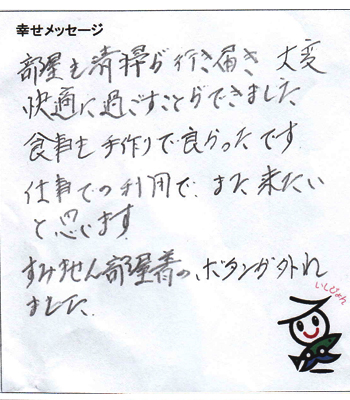 幸せメッセージ
部屋も清掃が行き届き 大変
快適に過ごすことができました
食事も手作りで良かったです
仕事での利用で、また来たい
と思います
すみません部屋着の、ボタンが外れ
ました.
いしじゃん